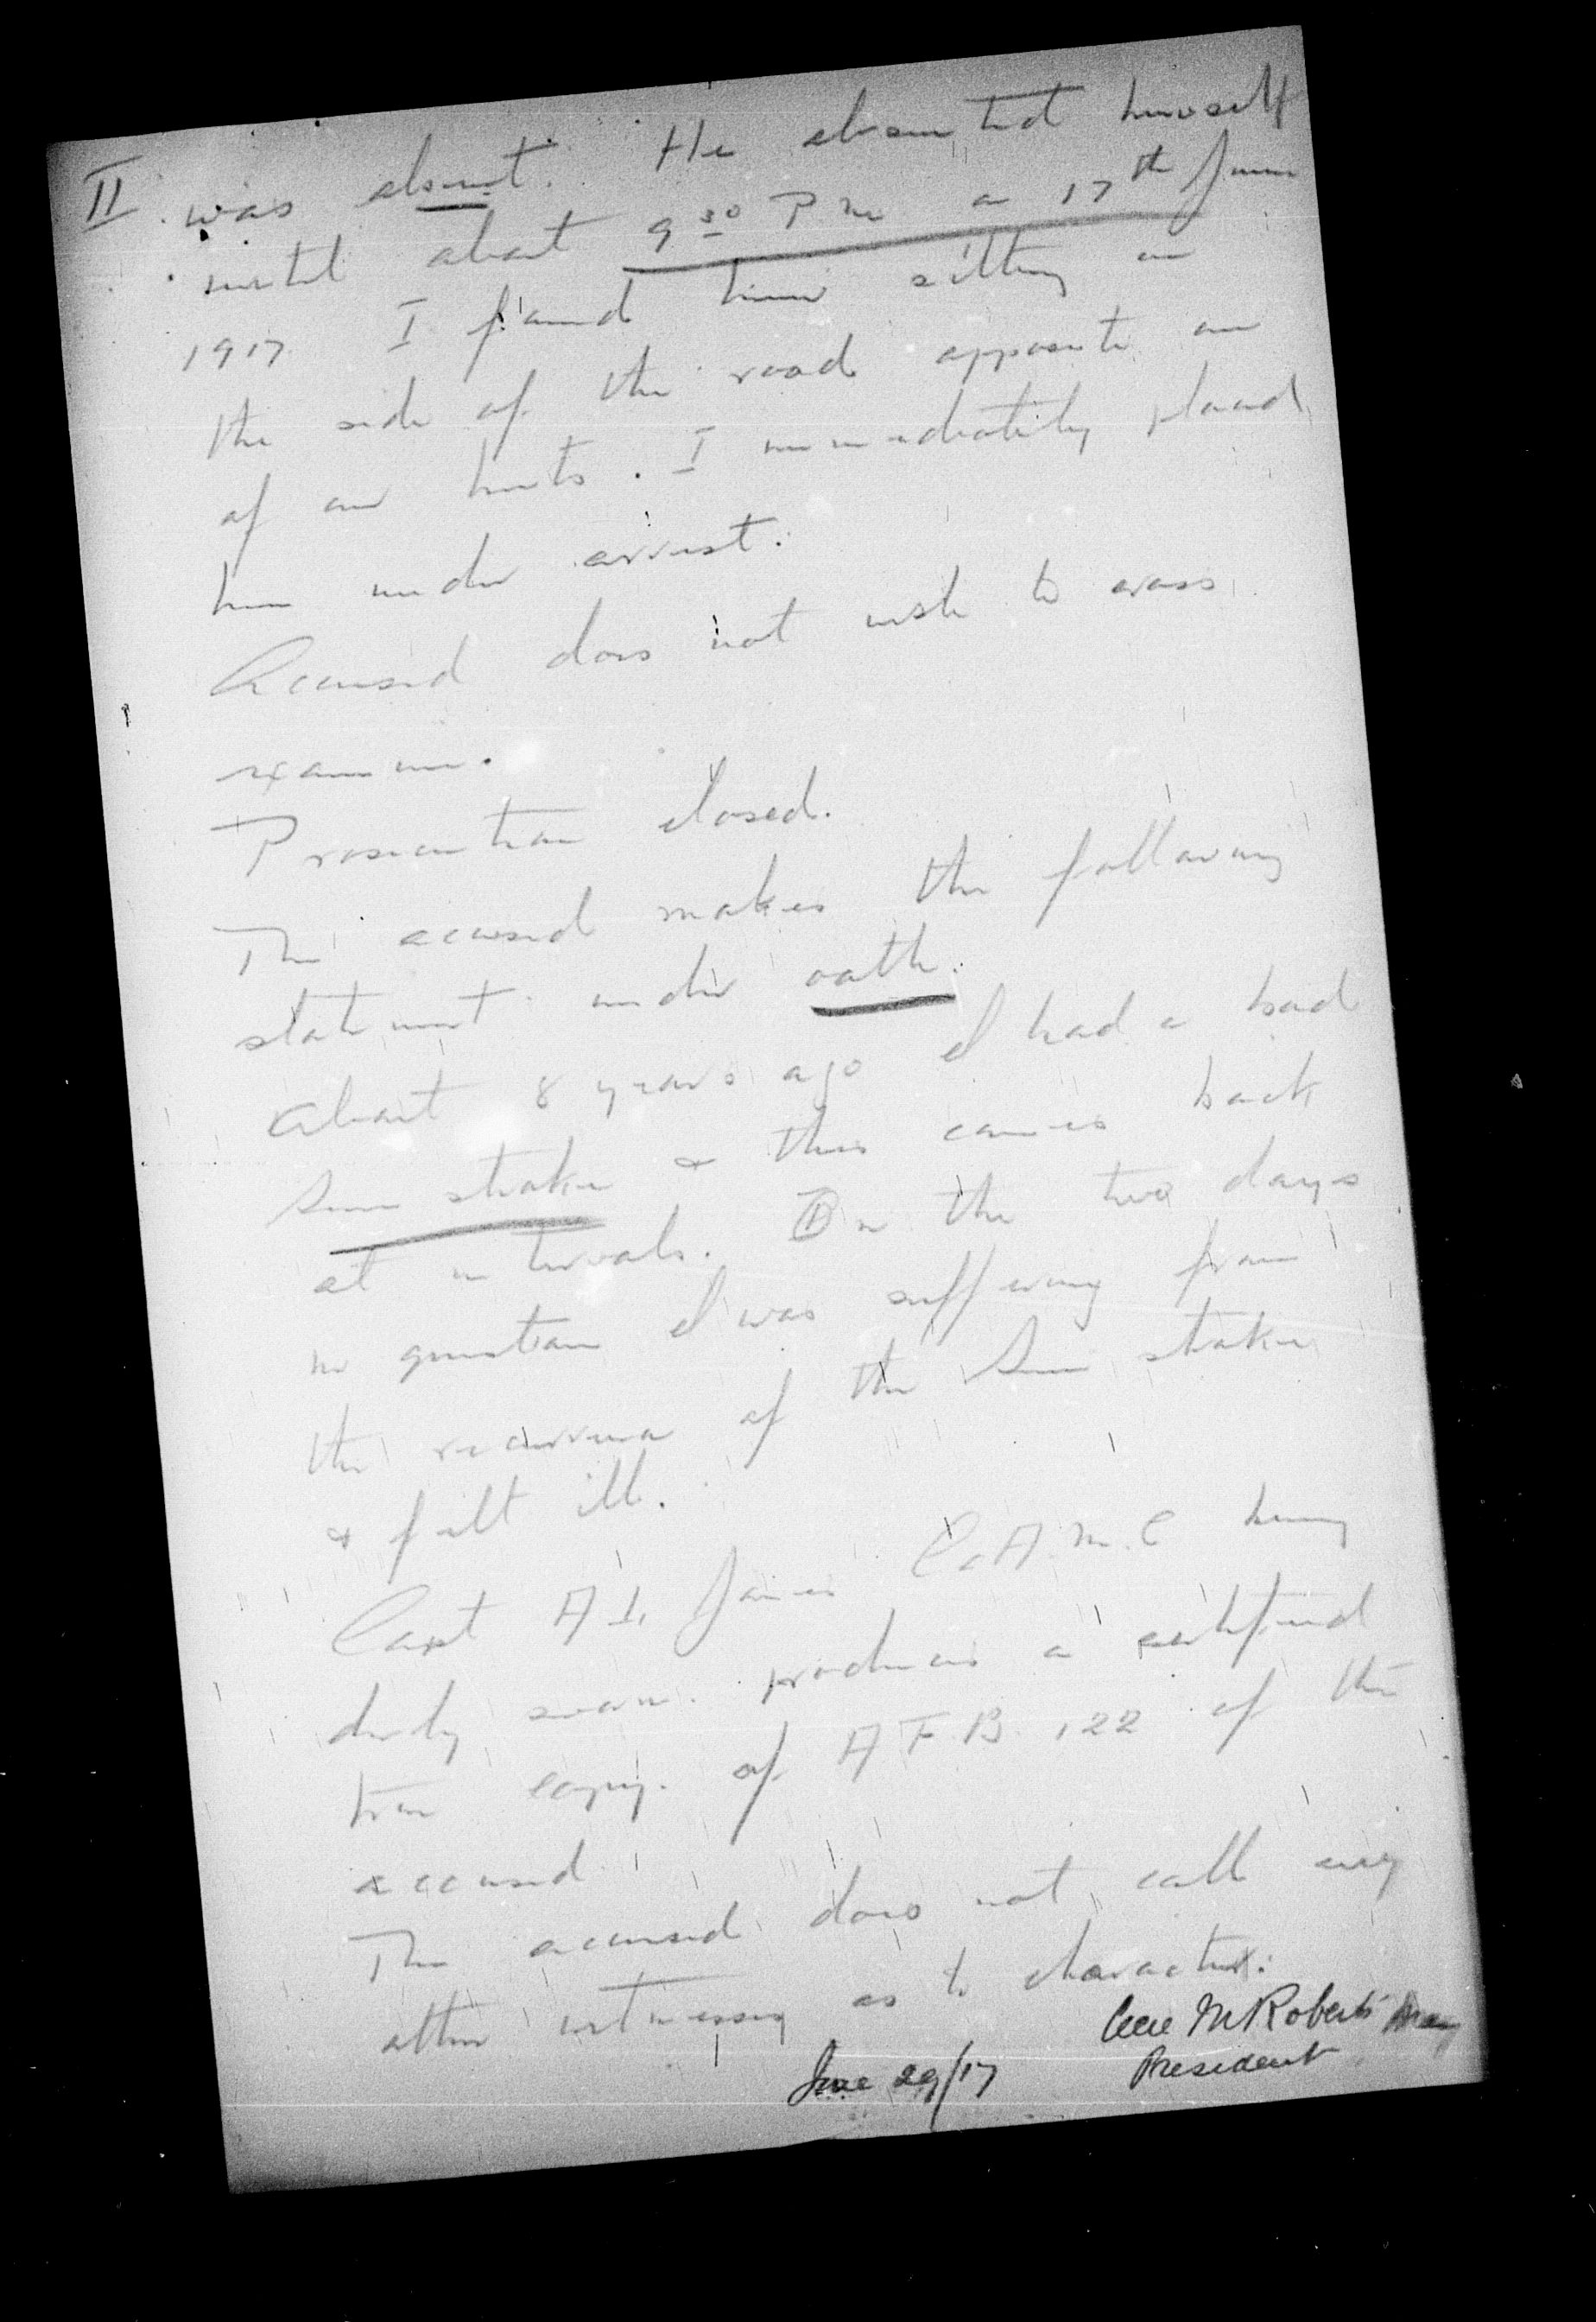 II was absent. He absented himself
until about 9 30 P m on 17th June
1917 I found him sitting on
the side of the road opposite one
of our huts. I immediately placed
him under arrest.
Accused does not wish to cross
examine.
Prosecution closed.
The accused makes the following
statement under oath.
About 8 years ago I had a bad
Sun stroke & this comes back
at intervals. On the two days
in question I was suffering from
the recurrence of the Sun stroke
& felt ill.
Capt A I. James C.A.M.C being
duly sworn. produces a certified
true copy. of A F. B. 122 of the
accused
The accused does not call any
other witnesses as to character.
M Roberts Maj
June 29/17 President